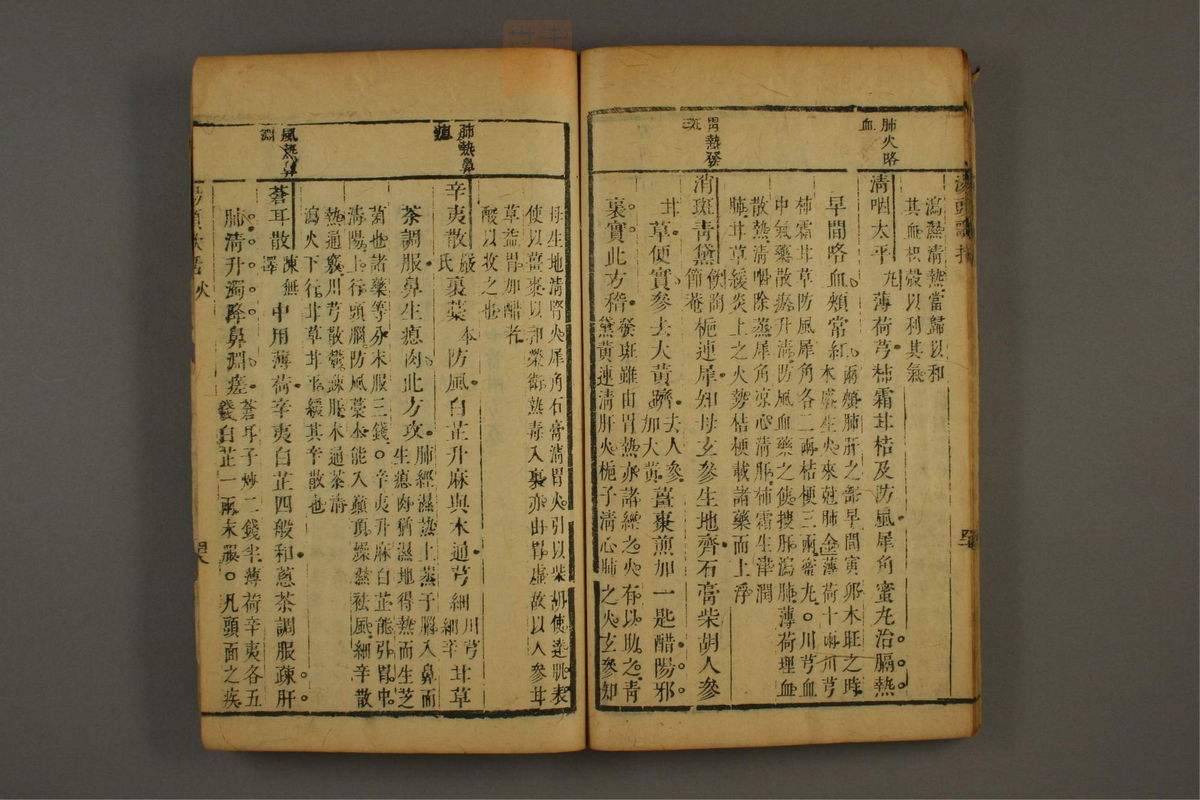 湯頭歌括
肺火略血
瀉蒸清熱當歸以和
其血枳殼以利其氣
清咽太平丸薄荷芎柿霜甘桔及防風犀角蜜丸治膈熱
早間略血頰常紅兩頰肺肝之部早間寅卯木旺之時
木盛生火來尅肺金薄荷十兩川芎
柿霜甘草防風犀角各二兩桔梗三兩蜜丸○川芎血
中氣藥散瘀升清防風血藥之使搜肝瀉肺薄荷理血
散熱清咽除蒸犀角凉心清肝柿霜生津潤
肺甘草緩炎上之火勢桔梗載諸藥而上浮
胃熱發斑
消斑青黛飲陶節菴梔連犀知母玄參生地齊石膏柴胡人參
甘草便實參去大黃躋去人參加大黃薑棗煎加一匙醋陽邪
裏實此方稽發斑雖由胃熱亦諸經之火有以助之青
黛黃連清肝火梔子清心肺之火玄參知
母生地清腎火犀角石膏清胃火引以柴胡使達肌表
使以薑棗以和榮衛熱毒入裏亦由胃虛故以人參甘
草益胃加醋者
酸以收之也
肺熱鼻瘜
辛夷散嚴氏裏藁本防風白芷升麻與木通芎細川芎細辛甘草
茶調服鼻生瘜肉此方攻肺經濕熱上蒸于腦入鼻而
生瘜肉猶濕地得熱而生芝
菌也諸藥等分末服三錢○辛夷升麻白芷能引胃中
清陽上行頭腦防風藁本能入巔頂燥濕祛風細辛散
熱通竅川芎散鬱疎肝木通茶清
瀉火下行甘草甘平緩其辛散也
風熱鼻淵
蒼耳散陳無擇中用薄荷辛夷白芷四般和蔥茶調服疎肝
肺清升濁降鼻淵瘥蒼耳子炒二錢半薄荷辛夷各五
錢白芷一兩末服○凡頭面之疾
湯頭歌括 火